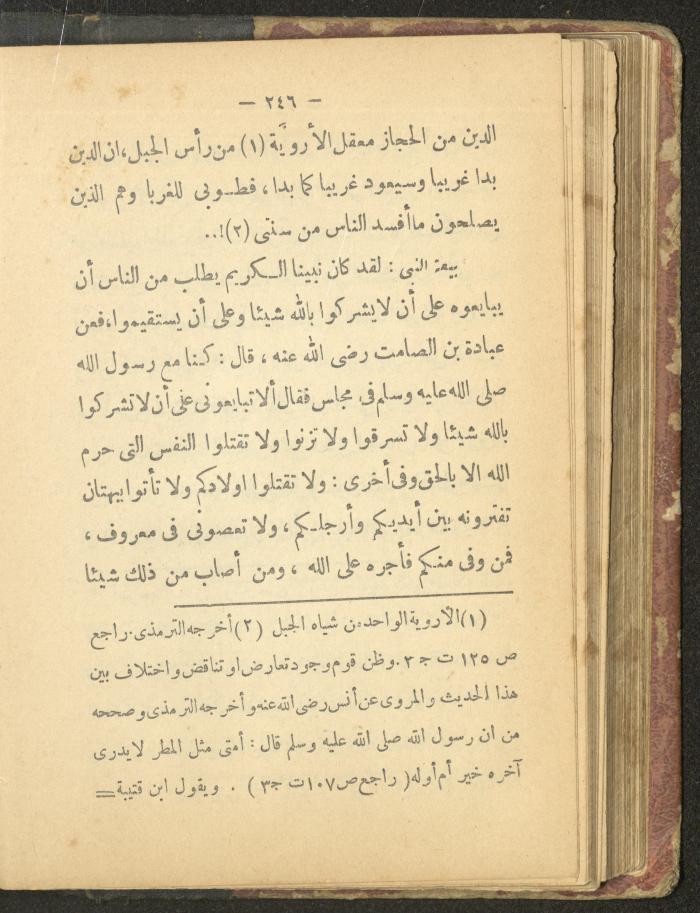 – ٢٤٦ –
الدين من الحجاز معقل الأروية (١) من رأس الجبل، ان الدين
بدا غريبا وسيعود غريبا كما بدا، فطوبى للغربا وهم الذين
يصلحون ما أفسد الناس من سنتى (٢)!..
بيعة النبى : لقد كان نبينا الكريم يطلب من الناس أن
يبايعوه على أن لا يشركوا بالله شيئا وعلى أن يستقيموا، فعن
عبادة بن الصامت رضى الله عنه ، قال : كنا مع رسول الله
صلى الله عليه وسلم فى مجلس فقال ألا تبايعونى على أن لا تشركوا
بالله شيئا ولا تسرقوا ولا تزنوا ولا تقتلوا النفس التى حرم
الله الا بالحق وفى أخرى : ولا تقتلوا اولادكم ولا تأتوا ببهتان
تفترونه بين أيديكم وأرجلكم، ولا تعصونى فى معروف ،
فمن وفى منكم فأجره على الله ، ومن أصاب من ذلك شيئا
(١) الأروية الواحدة من شياه الجبل (٢) أخرجه الترمذى. راجع
ص ١٢٥ ت ج ٣. وظن قوم وجود تعارض او تناقض واختلاف بين
هذا الحديث والمروى عن أنس رضى الله عنه وأخرجه الترمذى وصححه
من ان رسول الله صلى الله عليه وسلم قال : أمتى مثل المطر لا يدرى
آخره خير أم أوله ( راجع ص ١٠٧ ت ج ٣ ) . ويقول ابن قتيبة =